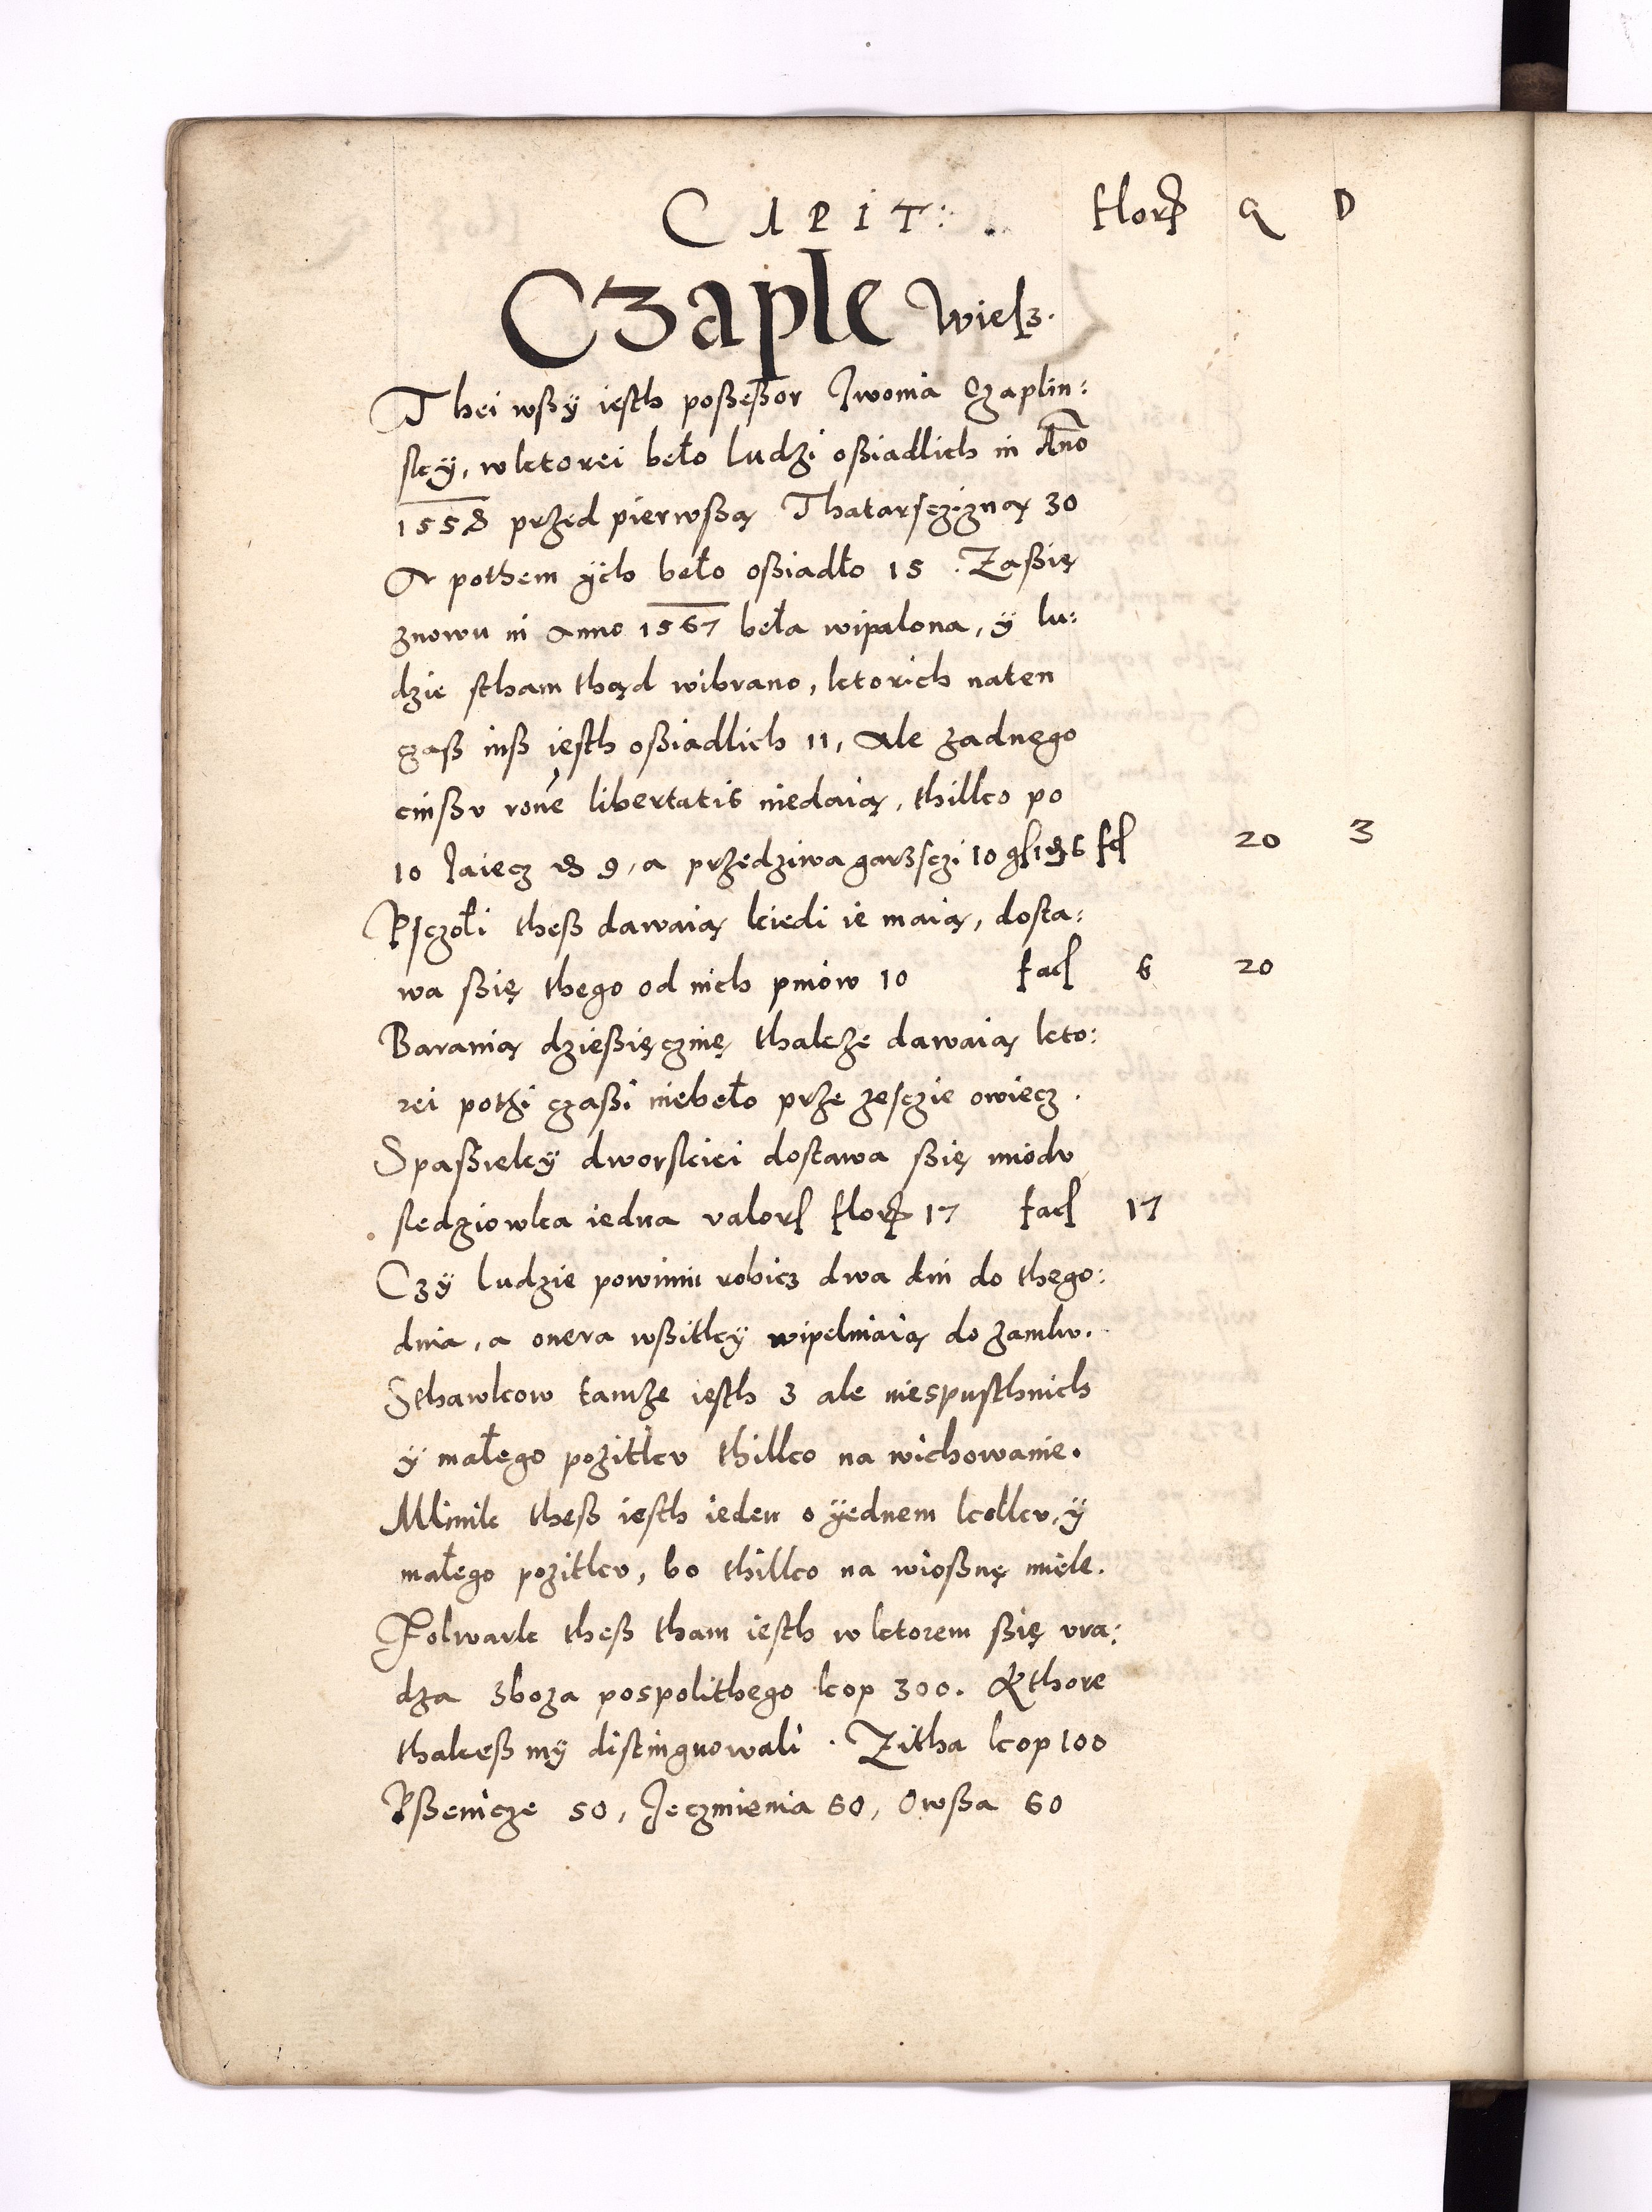 CAPIT: flor G D
Czaple Wiesz.
Thei wßÿ iesth poßeßor Iwonia Czaplin:
skÿ, w ktorei beło ludzi oßiadlich in Anno
1558 przed pierwßą Thatarsczizną 30
A pothem ÿch beło oßiadło 15. Zaßię
znowu in Anno 1567 beła wipalona, ÿ lu:
dzie stham thąd wibrano, ktorich naten
czaß inß iesth oßiadlich 11, Ale zadnego
cinßv rone libertatis niedaią, thilko po
10 Iaiecz 9, a przedziwa garzsczi 10 20 3
Psczołi theß dawaią kiedi ie maią, dosta:
wa ßię thego od nich pniow 10 fac 6 20
Barania dzießięczinę thakze dawaią kto:
rei pothi czaßi niebeło prze zesczie owiecz.
Spaßiekÿ dworskiei dostawa ßię miodv
sledziowka iedna valor flor 17 fac 17
Czÿ ludzie powinni robicz dwa dni do thego:
dnia, a onera wßitkÿ wipelniaią do zamkv.
Sthawkow tamze iesth 3 ale niespusthnich
ÿ małego pozitkv thilko na wichowanie.
Mlinik theß iesth ieden o ÿednem kołkv, ÿ
małego pozitkv, bo thilko na wioßnę miele.
Folwark theß tham iesth w ktorem ßię vra:
dza zboza pospolithego kop 300. Kthore
thakeß mÿ distinguowali. Zitha kop 100
Pßenicze 50, Ieczmienia 60, Owßa 60